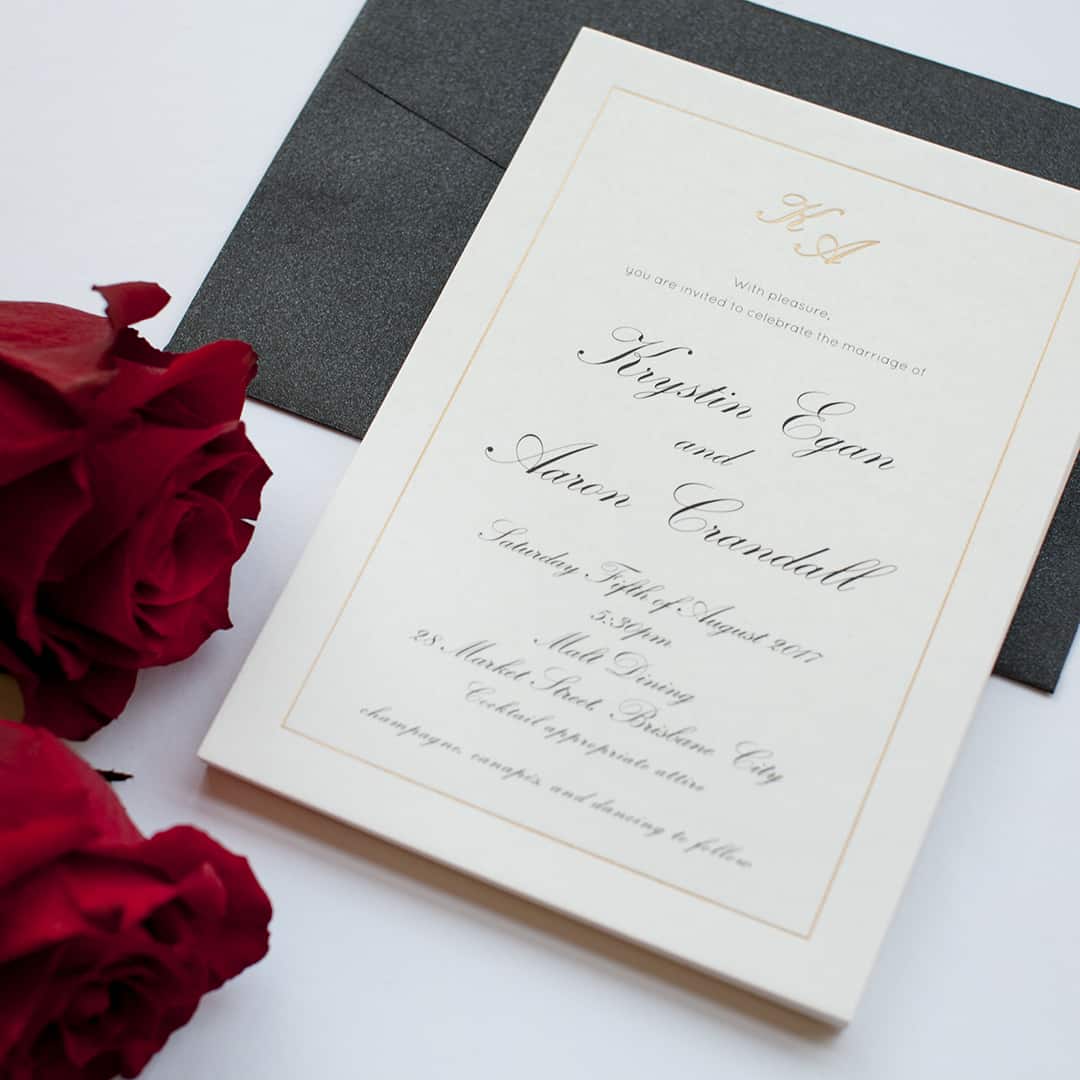 K
A
With pleasure,
you are invited to celebrate the marriage of
Krystin Egan
and
Aaron Crandall
Saturday Fifth of August 2017
5:30pm
Malt Dining
28 Market Street, Brisbane City
Cocktail appropriate attire
champagne, canapés, and dancing to follow